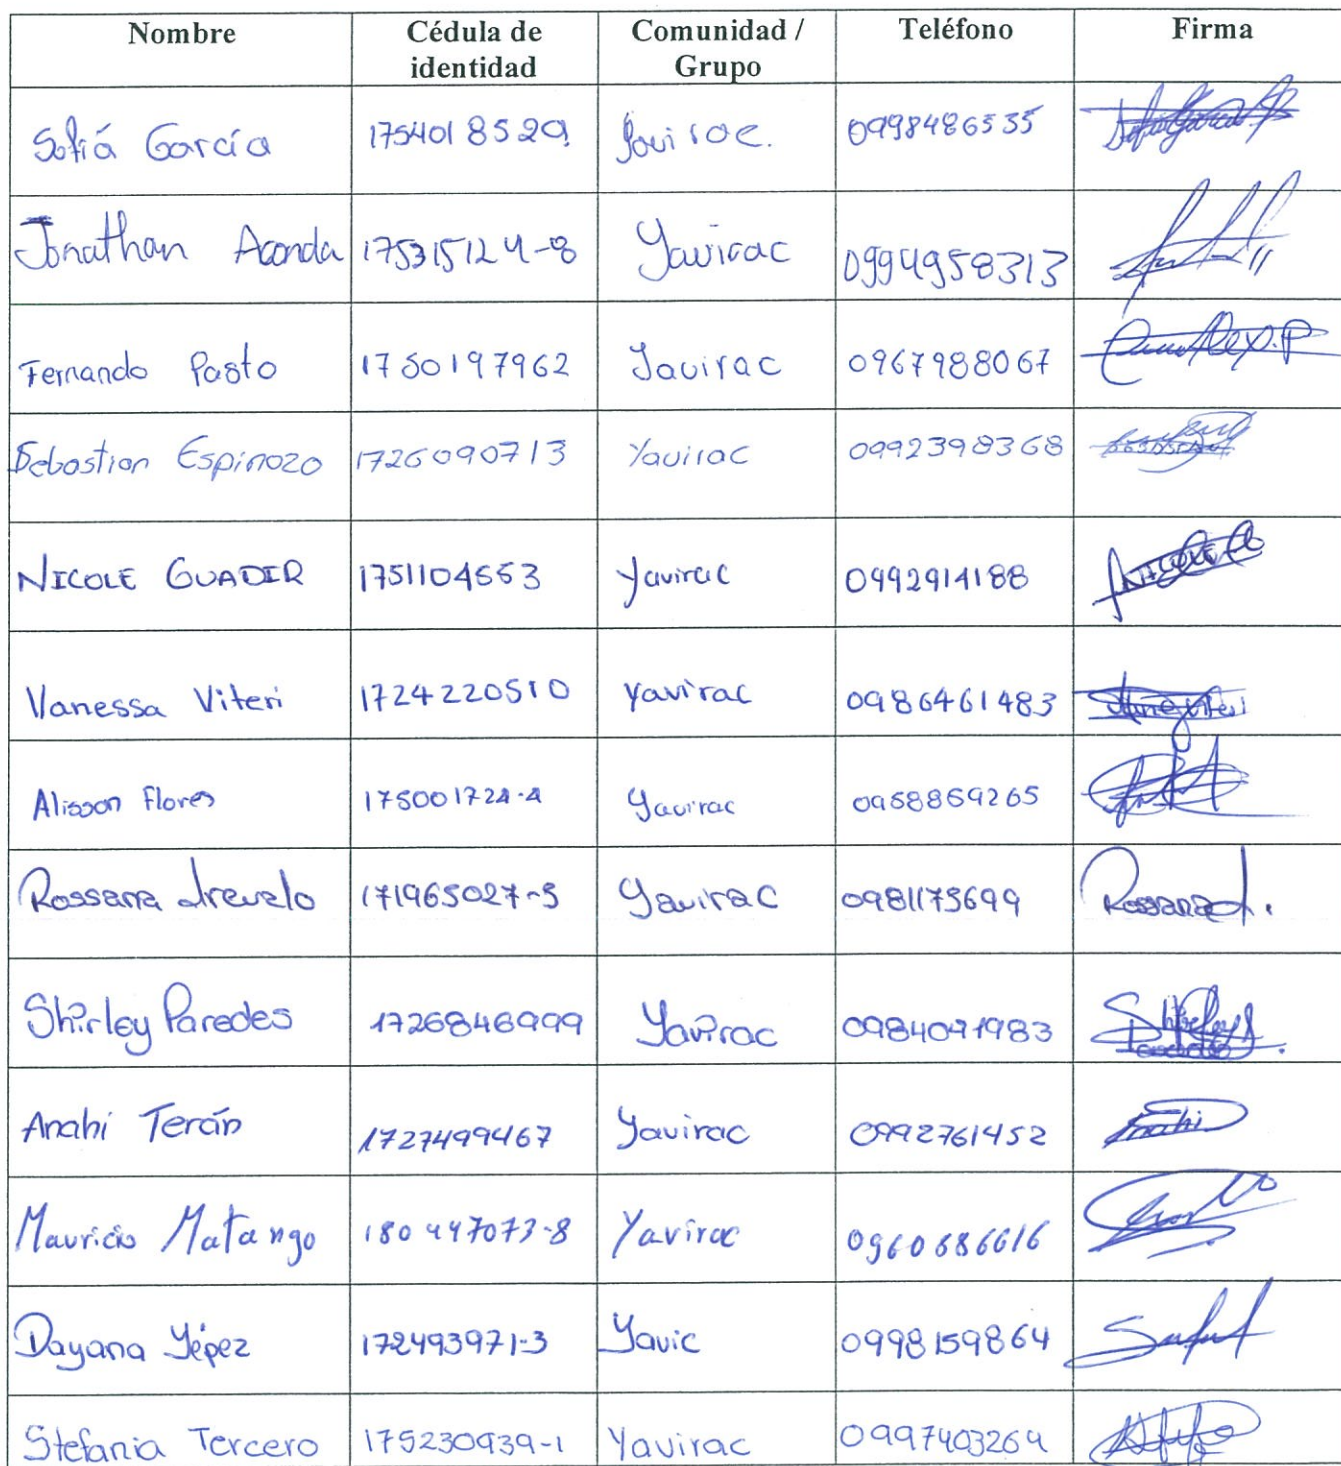 Nombre Cédula de identidad Comunidad / Grupo Teléfono Firma
Sofiá García 1754018529 0998486535
Jonathan Aconda 175315124-8 Yavirac 0994958313
Fernando Pasto 1750197962 Yavirac 0967988067
Sebastian Espinozo 1726090713 Yavirac 0992398368
NICOLE GUADIR 1751104553 Yavirac 0992914188
Vanessa Viteri 1724220510 yavirac 0986461483
Alisson Flores 175001724-4 Yavirac 0958859265
Rossana Arevalo 171965027-5 Yavirac 0981175699 Rossana A.
Shirley Paredes 1726846999 Yavirac 0984091983 Shirley
Anahi Terán 1727499467 Yavirac 0992761452 Anahi
Mauricio Matango 180447073-8 Yavirac 0960686616
Dayana Yépez 172493971-3 Yavic 0998159864
Stefania Tercero 175230939-1 Yavirac 0997403264